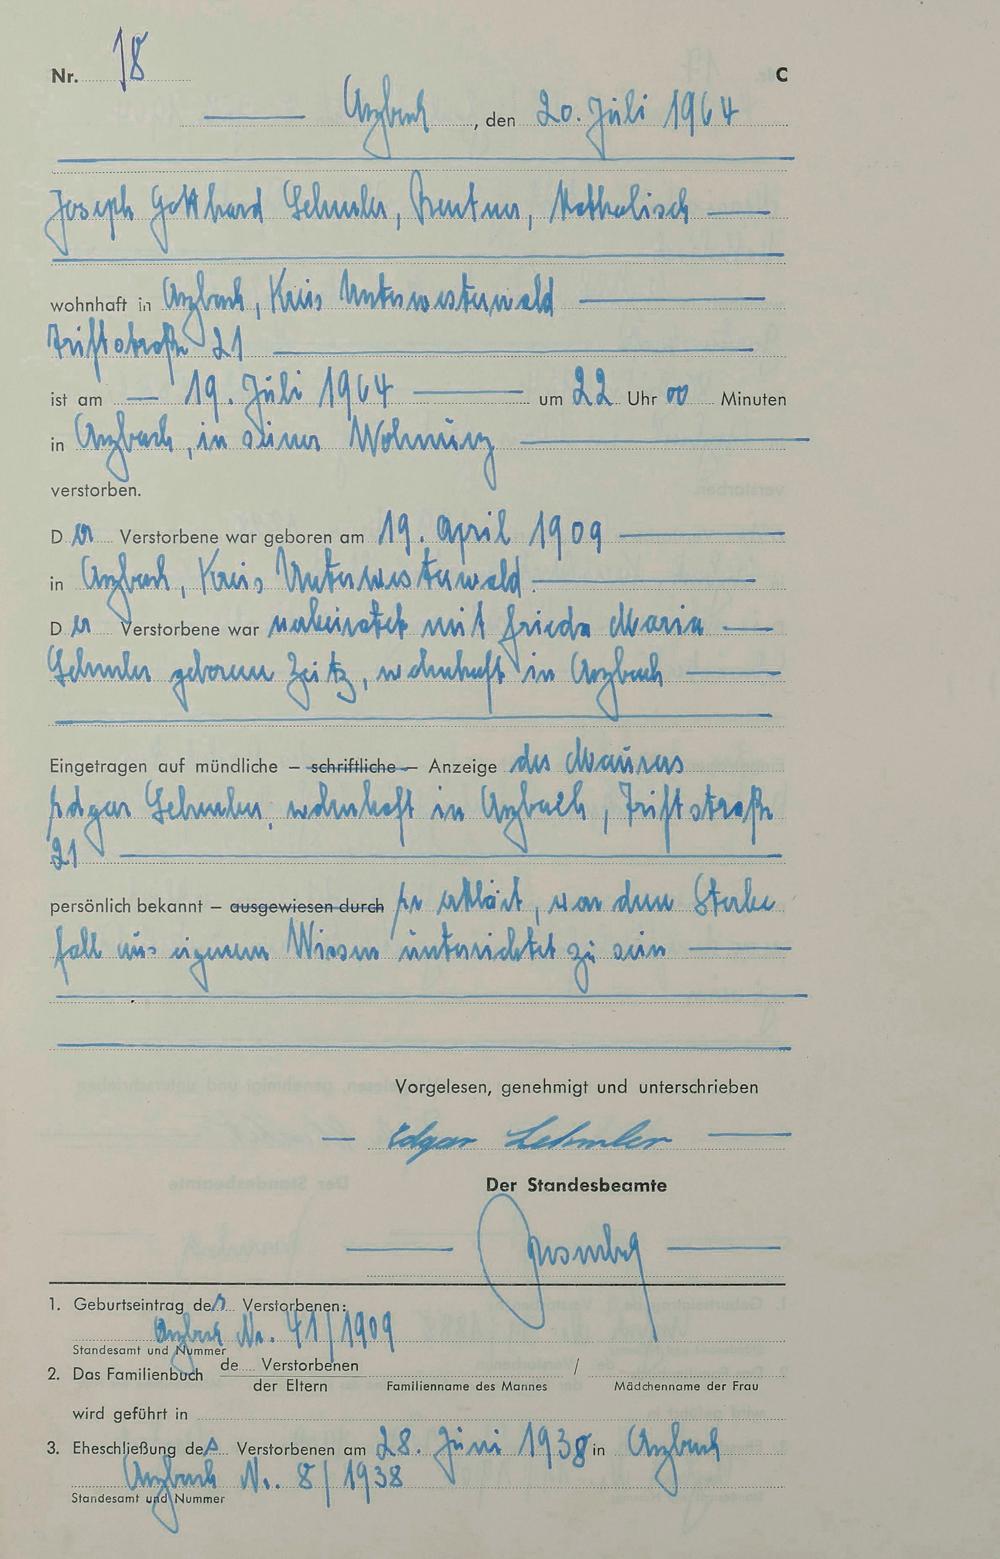 Nr. 18 C
Arzbach, den 20. Juli 1964
Joseph Gotthard Lehmler, Rentner, katholisch
wohnhaft in Arzbach, Kreis Unterwesterwald
Triftstraße 21
ist am 19. Juli 1964 um 22 Uhr 00 Minuten
in Arzbach, in seiner Wohnung
verstorben.
Der Verstorbene war geboren am 19. April 1909
in Arzbach, Kreis Unterwesterwald.
Der Verstorbene war verheiratet mit Frieda Maria
Lehmler geborene Zeitz, wohnhaft in Arzbach
Eingetragen auf mündliche – schriftliche – Anzeige des Maurers
Edgar Lehmler, wohnhaft in Arzbach, Triftstraße
21
persönlich bekannt – ausgewiesen durch Er erklärt, von dem Sterbe
fall aus eigenem Wissen unterrichtet zu sein
Vorgelesen, genehmigt und unterschrieben
Edgar Lehmler
Der Standesbeamte
1. Geburtseintrag des Verstorbenen:
Arzbach Nr. 41/1909
Standesamt und Nummer
2. Das Familienbuch de Verstorbenen /
der Eltern Familienname des Mannes Mädchenname der Frau
wird geführt in
3. Eheschließung des Verstorbenen am 28. Juni 1938 in Arzbach
Arzbach Nr. 8/1938
Standesamt und Nummer